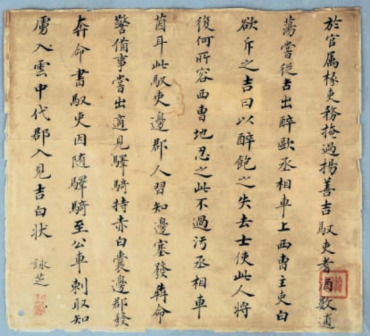 於官属掾吏務掩過揚善吉馭吏耆酒數逋
蕩嘗從吉出醉歐丞相車上西曹主吏白
欲斥之吉曰以醉飽之失去士使此人將
復何所容西曹地忍之此不過污丞相車
茵耳此馭吏邊郡人習知邊塞發犇命
警備事嘗出適見驛騎持赤白囊邊郡發
犇命書馭吏因随驛騎至公車刺取知
虜入雲中代郡入見吉白狀 詠芝